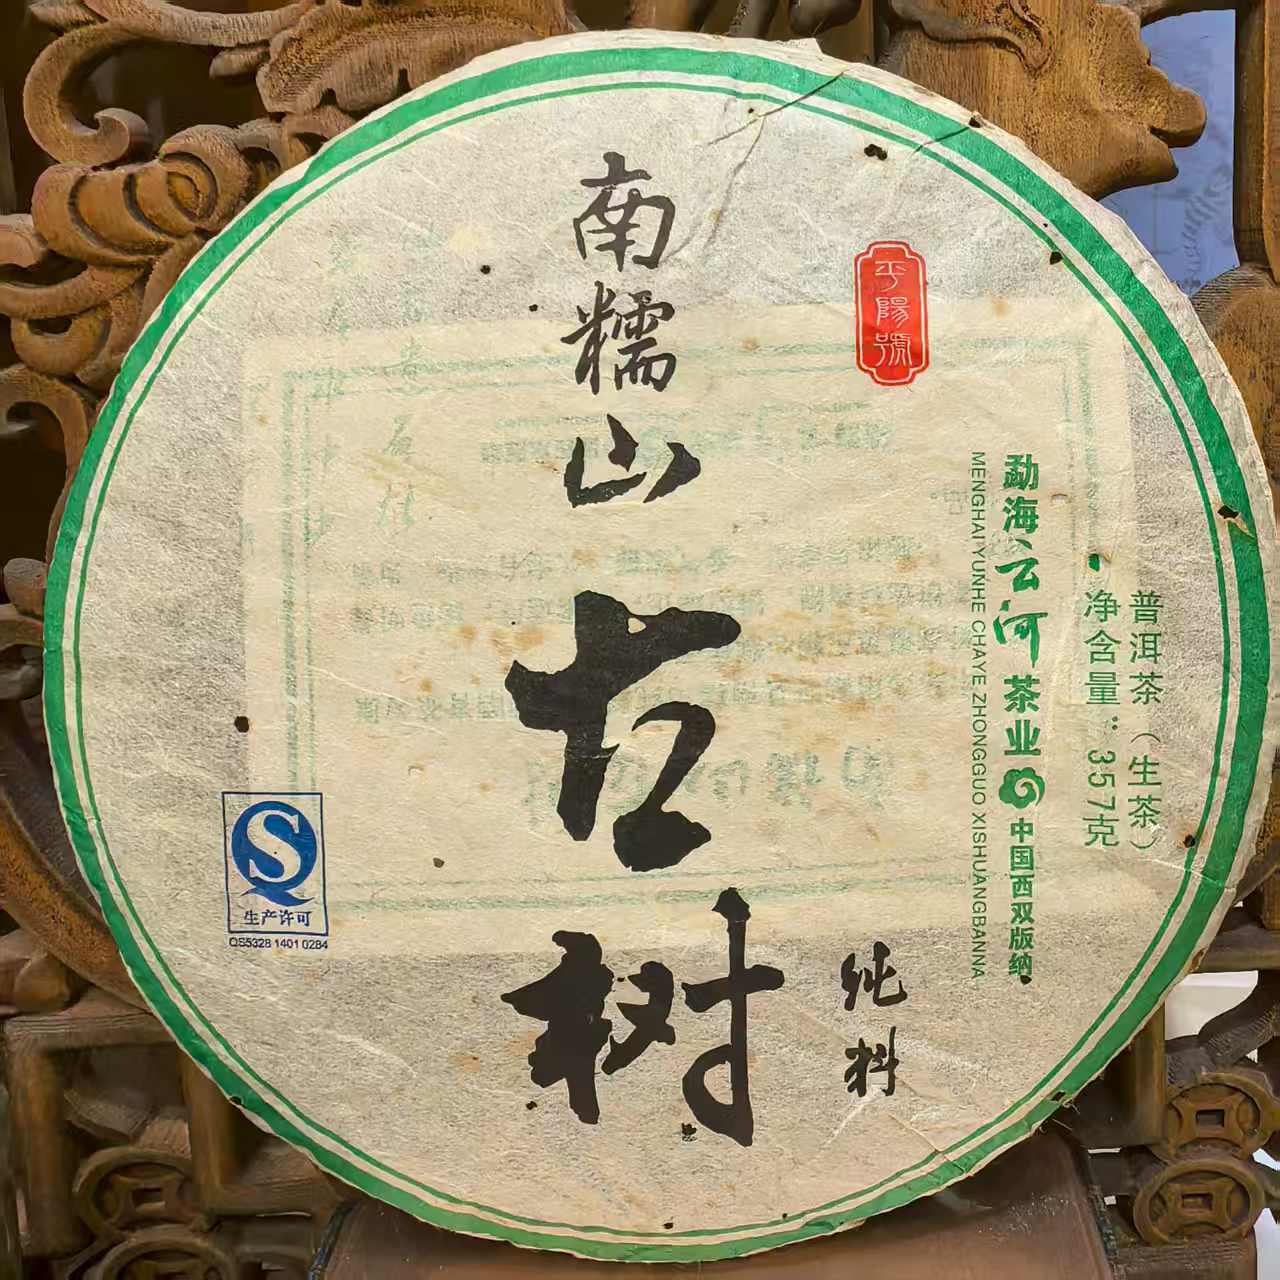 南糯山
古树
纯料
平陽號
勐海云河茶业 中国西双版纳
MENGHAI YUNHE CHAYE ZHONGGUO XISHUANGBANNA
普洱茶（生茶）
净含量：357克
生产许可
QS5328 1401 0284